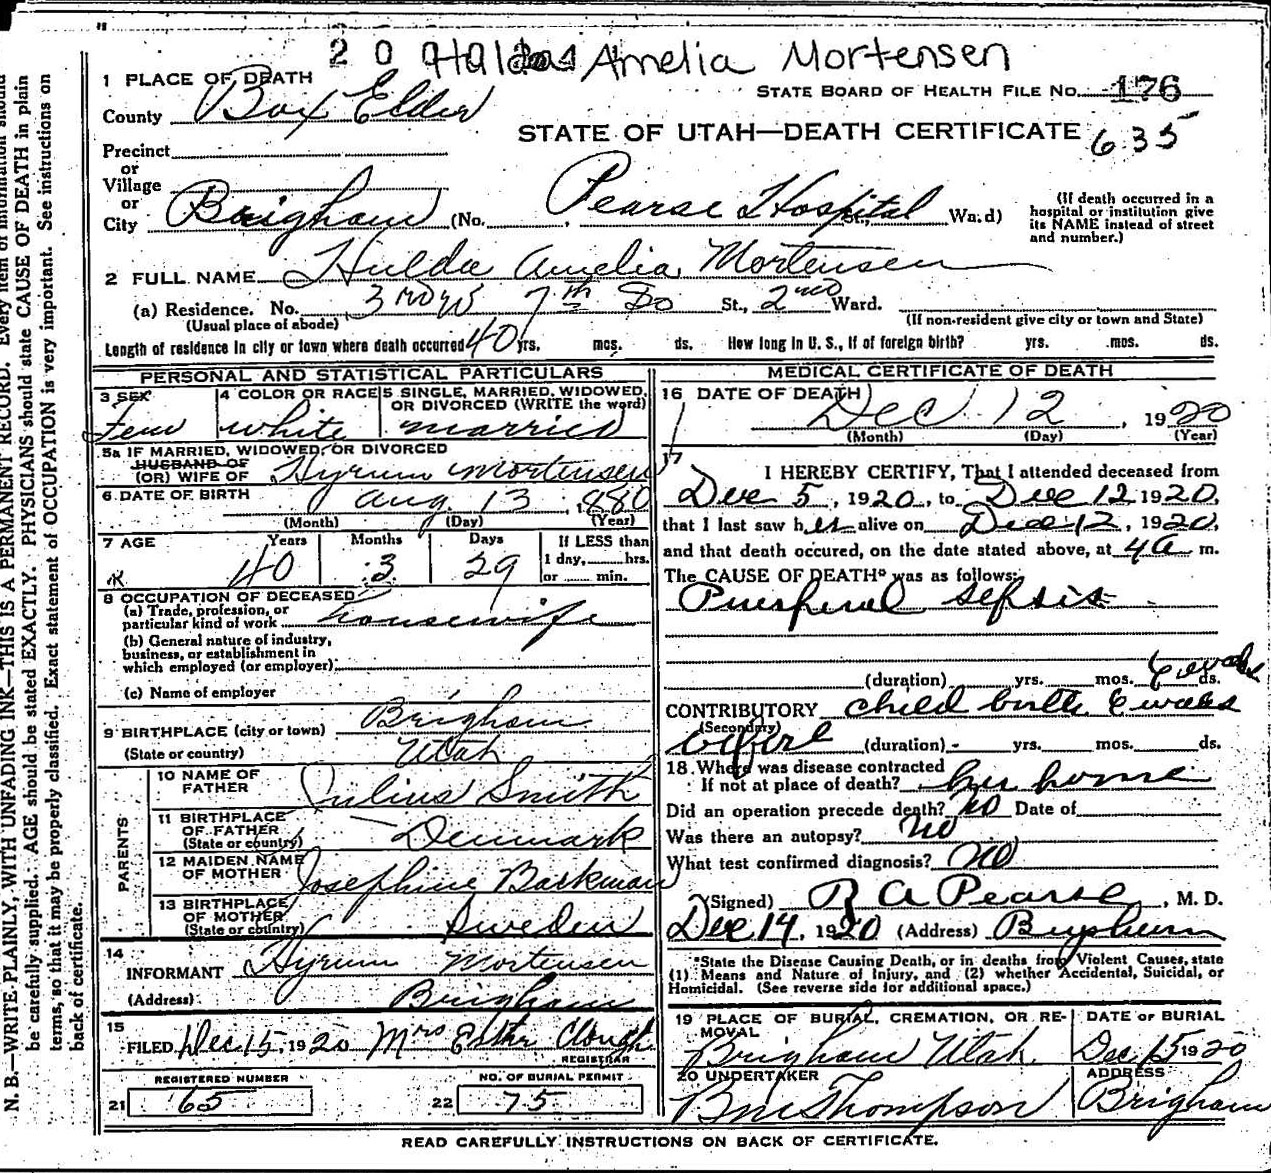 2 0 Hulda Amelia Mortensen
1 PLACE OF DEATH
STATE BOARD OF HEALTH FILE No. 176
County Box Elder
STATE OF UTAH—DEATH CERTIFICATE 635
Precinct
or
Village
or
City Brigham (No. Pearse Hospital St., Ward)
(If death occurred in a
hospital or institution give
its NAME instead of street
and number.)
2 FULL NAME Hulda Amelia Mortensen
(a) Residence. No. 3rd W 7th So St., 2nd Ward.
(Usual place of abode)
(If non-resident give city or town and State)
Length of residence in city or town where death occurred 40 yrs. mos. ds. How long in U. S., if of foreign birth? yrs. mos. ds.
PERSONAL AND STATISTICAL PARTICULARS
3 SEX
4 COLOR OR RACE
5 SINGLE, MARRIED, WIDOWED,
OR DIVORCED (WRITE the word)
Fem white married
5a IF MARRIED, WIDOWED, OR DIVORCED
HUSBAND OF
(OR) WIFE OF Hyrum Mortensen
6 DATE OF BIRTH Aug 13, 1880
(Month) (Day) (Year)
7 AGE Years Months Days If LESS than
1 day, hrs.
or min.
40 3 29
8 OCCUPATION OF DECEASED
(a) Trade, profession, or
particular kind of work housewife
(b) General nature of industry,
business, or establishment in
which employed (or employer)
(c) Name of employer
9 BIRTHPLACE (city or town) Brigham
(State or country) Utah
PARENTS
10 NAME OF
FATHER Julius Smith
11 BIRTHPLACE
OF FATHER
(State or country) Denmark
12 MAIDEN NAME
OF MOTHER Josephine Barkman
13 BIRTHPLACE
OF MOTHER
(State or country) Sweden
14
INFORMANT Hyrum Mortensen
(Address) Brigham
15
FILED Dec 15, 1920 Mrs Esther Clough
REGISTRAR
REGISTERED NUMBER
21 65
NO. OF BURIAL PERMIT
22 75
MEDICAL CERTIFICATE OF DEATH
16 DATE OF DEATH
Dec 12, 1920
(Month) (Day) (Year)
17
I HEREBY CERTIFY, That I attended deceased from
Dec 5, 1920, to Dec 12 1920,
that I last saw her alive on Dec 12, 1920,
and that death occured, on the date stated above, at 4 a m.
The CAUSE OF DEATH* was as follows:
Puerperal sepsis
(duration) yrs. mos. 6 weeks ds.
CONTRIBUTORY child birth 6 weeks
(Secondary)
before (duration) yrs. mos. ds.
18 Where was disease contracted
If not at place of death? her home
Did an operation precede death? no Date of
Was there an autopsy? no
What test confirmed diagnosis? no
(Signed) R A Pearse, M. D.
Dec 14, 1920 (Address) Brigham
*State the Disease Causing Death, or in deaths from Violent Causes, state
(1) Means and Nature of Injury, and (2) whether Accidental, Suicidal, or
Homicidal. (See reverse side for additional space.)
19 PLACE OF BURIAL, CREMATION, OR RE-
MOVAL
Brigham Utah
DATE OF BURIAL
Dec 15 1920
20 UNDERTAKER
Thompson
ADDRESS
Brigham
READ CAREFULLY INSTRUCTIONS ON BACK OF CERTIFICATE.
N. B.—WRITE PLAINLY, WITH UNFADING INK—THIS IS A PERMANENT RECORD. Every item of information should
be carefully supplied. AGE should be stated EXACTLY. PHYSICIANS should state CAUSE OF DEATH in plain
terms, so that it may be properly classified. Exact statement of OCCUPATION is very important. See instructions on
back of certificate.